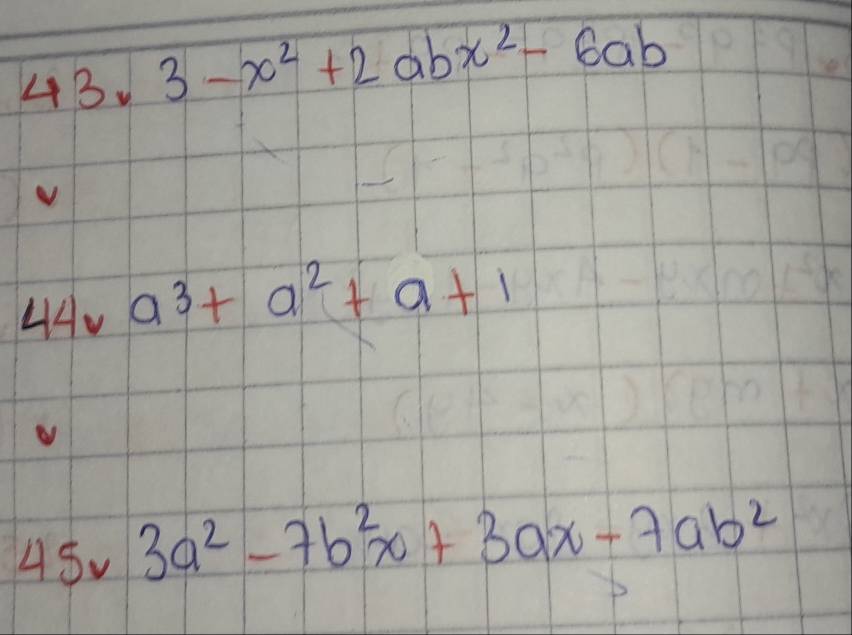 43. 3 - x² + 2abx² - 6ab
44. a³ + a² + a + 1
45. 3a² - 7b²x + 3ax - 7ab²